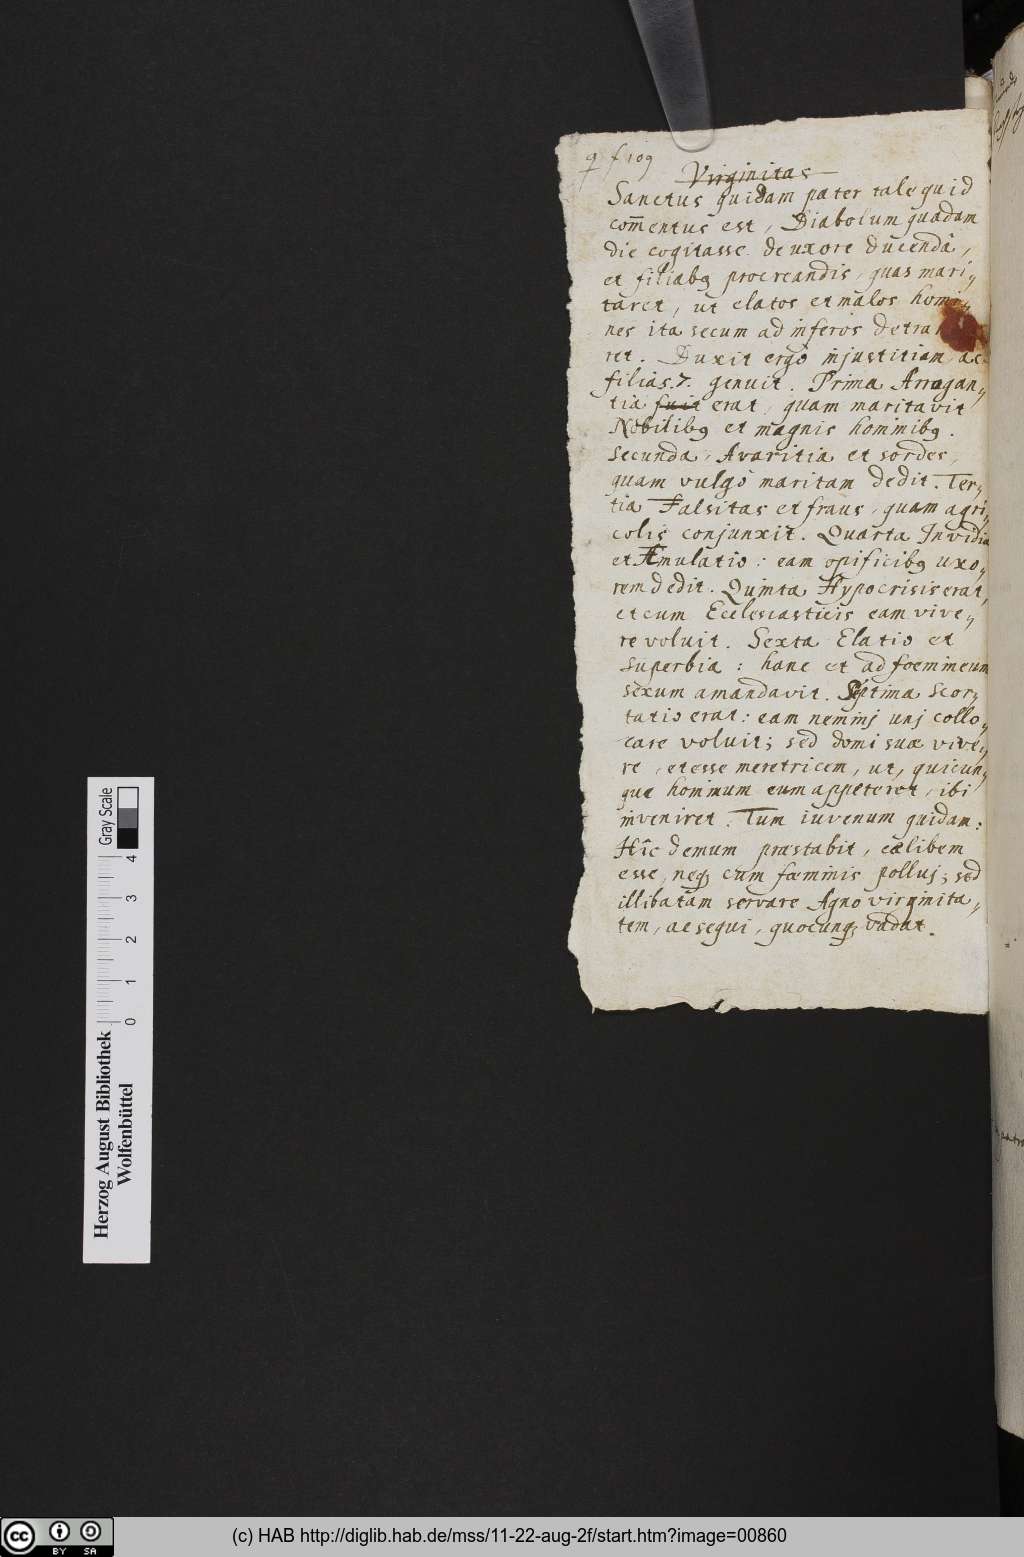 q f 109
Virginitas
Sanctus quidam pater tale quid
com̄entus est, Diabolum quadam
die cogitasse de uxore ducendâ,
et filiabꝫ procreandis, quas mari„
taret, ut elatos et malos homi„
nes ita secum ad inferos detra
ret. Duxit ergò injustitiam ac
filias.7. genuit. Prima Arrogan„
tia fuit erat, quam maritavit
Nobilibꝫ et magnis hominibꝫ.
Secunda, Avaritia et sordes,
quam vulgò maritam dedit. Ter„
tia Falsitas et fraus, quam agri„
colis conjunxit. Quarta Invidia
et Æmulatio: eam opificibꝫ uxo„
rem dedit. Quinta Hypocrisis erat,
et cum Ecclesiasticis eam vive„
re voluit. Sexta Elatio et
superbia: hanc et ad foemineum
sexum amandavit. Septima Scor„
tatio erat: eam neminj unj collo„
care voluit; sed domi suæ vive„
re, et esse meretricem, ut, quicun„
que hominum eum appeteret, ibi
inveniret. Tum iuvenum quidam:
Hîc demum præstabit, cælibem
esse, neqꝫ cum fœminis polluj; sed
illibatam servare Agno virginita„
tem, ac sequi, quocunqꝫ vadat.
Herzog August Bibliothek
Wolfenbüttel
0 1 2 3 4
Gray Scale
(c) HAB http://diglib.hab.de/mss/11-22-aug-2f/start.htm?image=00860
cc BY SA